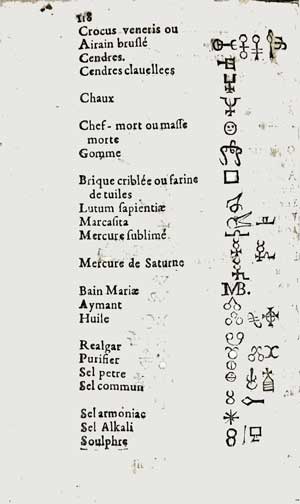 118
Crocus veneris ou
Airain bruslé
Cendres.
Cendres clauellees
Chaux
Chef-mort ou masse
morte
Gomme
Brique criblée ou farine
de tuiles
Lutum sapientiæ
Marcasita
Mercure sublimé.
Mercure de Saturne
Bain Mariæ MB.
Aymant
Huile
Realgar
Purifier
Sel petre
Sel commun
Sel armoniac
Sel Alkali
Soulphre